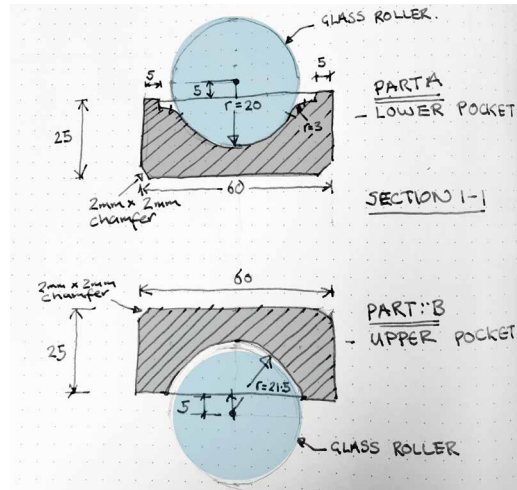 GLASS ROLLER.
5
5
5
r=20
r=3
25
PART A
- LOWER POCKET
60
2mm x 2mm
chamfer
SECTION 1-1
60
2mm x 2mm
chamfer
PART: B
- UPPER POCKET
25
r=21.5
5
GLASS ROLLER